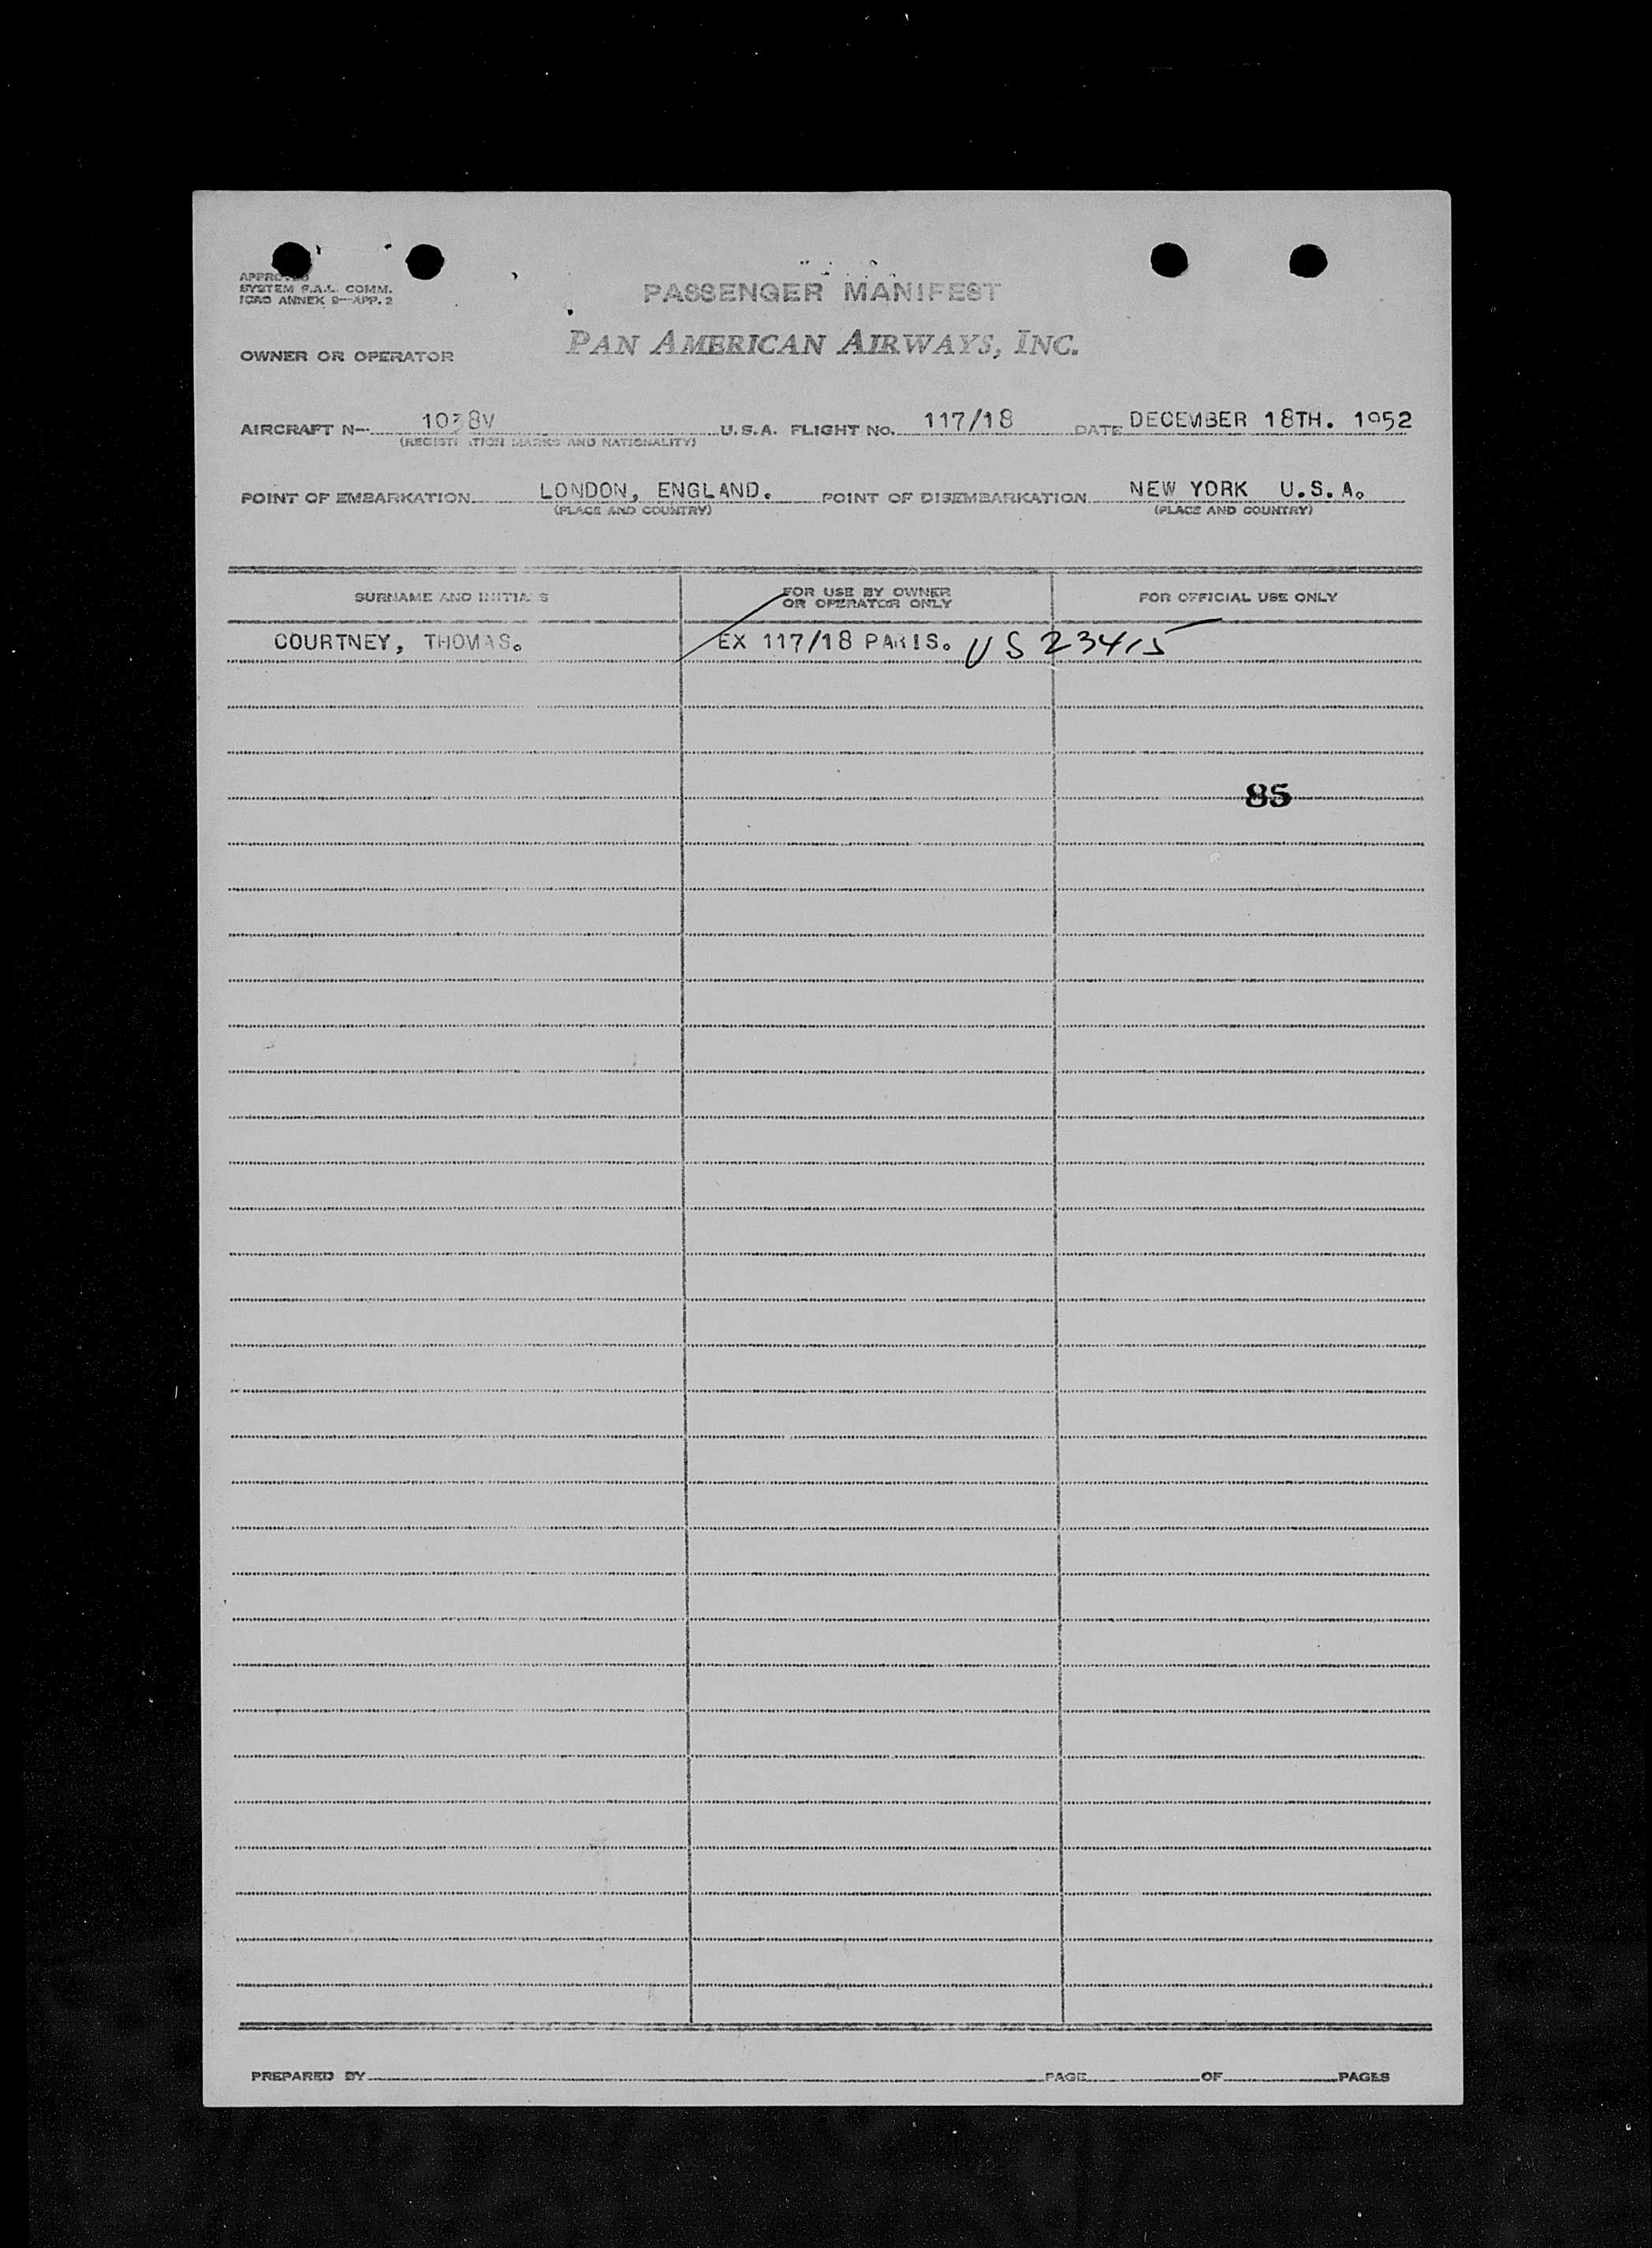 APPROVED
SYSTEM P.A.L. COMM.
ICAO ANNEX 9—APP. 2
PASSENGER MANIFEST
OWNER OR OPERATOR PAN AMERICAN AIRWAYS, INC.
AIRCRAFT N— 1038V U.S.A. FLIGHT NO. 117/18 DATE DECEMBER 18TH. 1952
(REGISTRATION MARKS AND NATIONALITY)
POINT OF EMBARKATION LONDON, ENGLAND. POINT OF DISEMBARKATION NEW YORK U.S.A.
(PLACE AND COUNTRY) (PLACE AND COUNTRY)
SURNAME AND INITIALS FOR USE BY OWNER OR OPERATOR ONLY FOR OFFICIAL USE ONLY
COURTNEY, THOMAS. EX 117/18 PARIS. US 23415
85
PREPARED BY PAGE OF PAGES